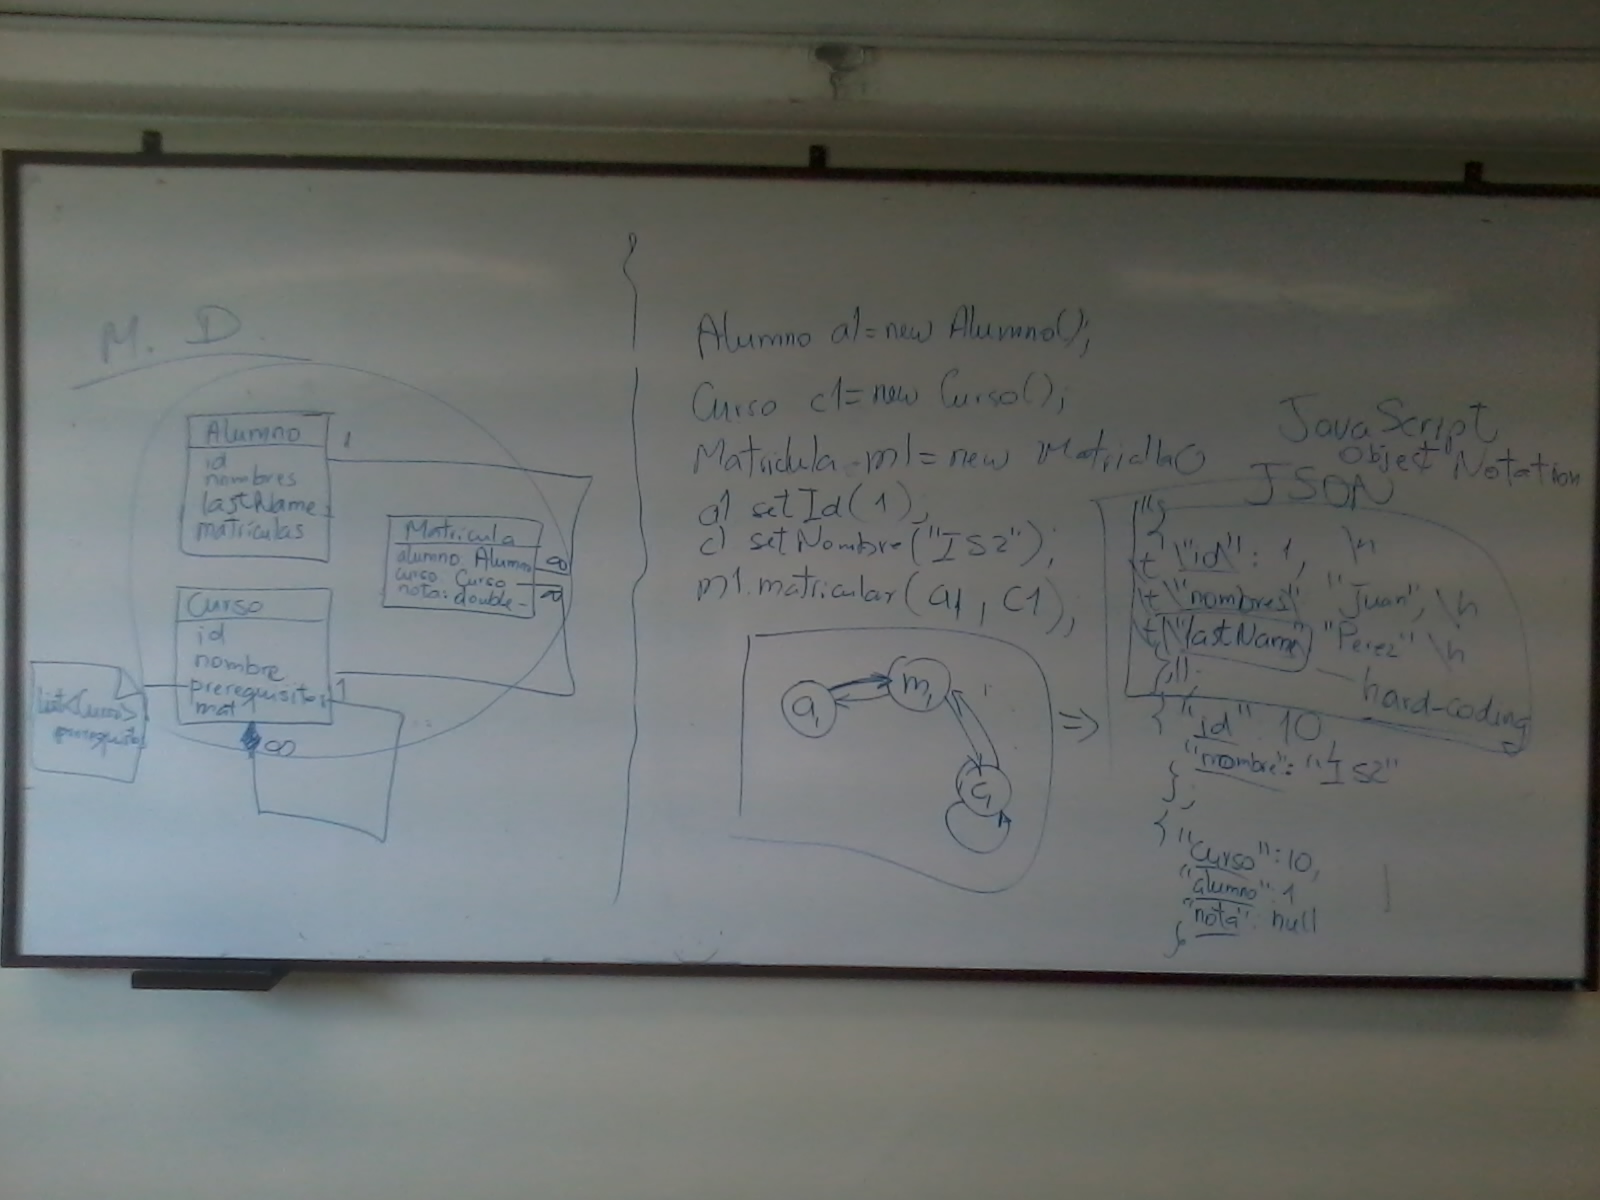 M. D.
Alumno
id
nombres
lastName
matriculas
1
Matricula
alumno Alumno
curso Curso
nota: double
∞
∞
Curso
id
nombre
prerequisitos
mat
1
∞
List<Curso>
Alumno a1 = new Alumno();
Curso c1 = new Curso();
a1 setId(1);
c1 setNombre("IS2");
m1.matricular(a1, c1);
a1
m1
c1
⇒
JavaScript
Object Notation
JSON
"{
\t \"id\" : 1, \n
\t \"nombres\" "Juan", \n
\t \"lastName\" "Perez" \n
hard-coding
{ "id" 10,
"nombre": "IS2"
};
{ "curso": 10,
"alumno": 1
"nota": null
}